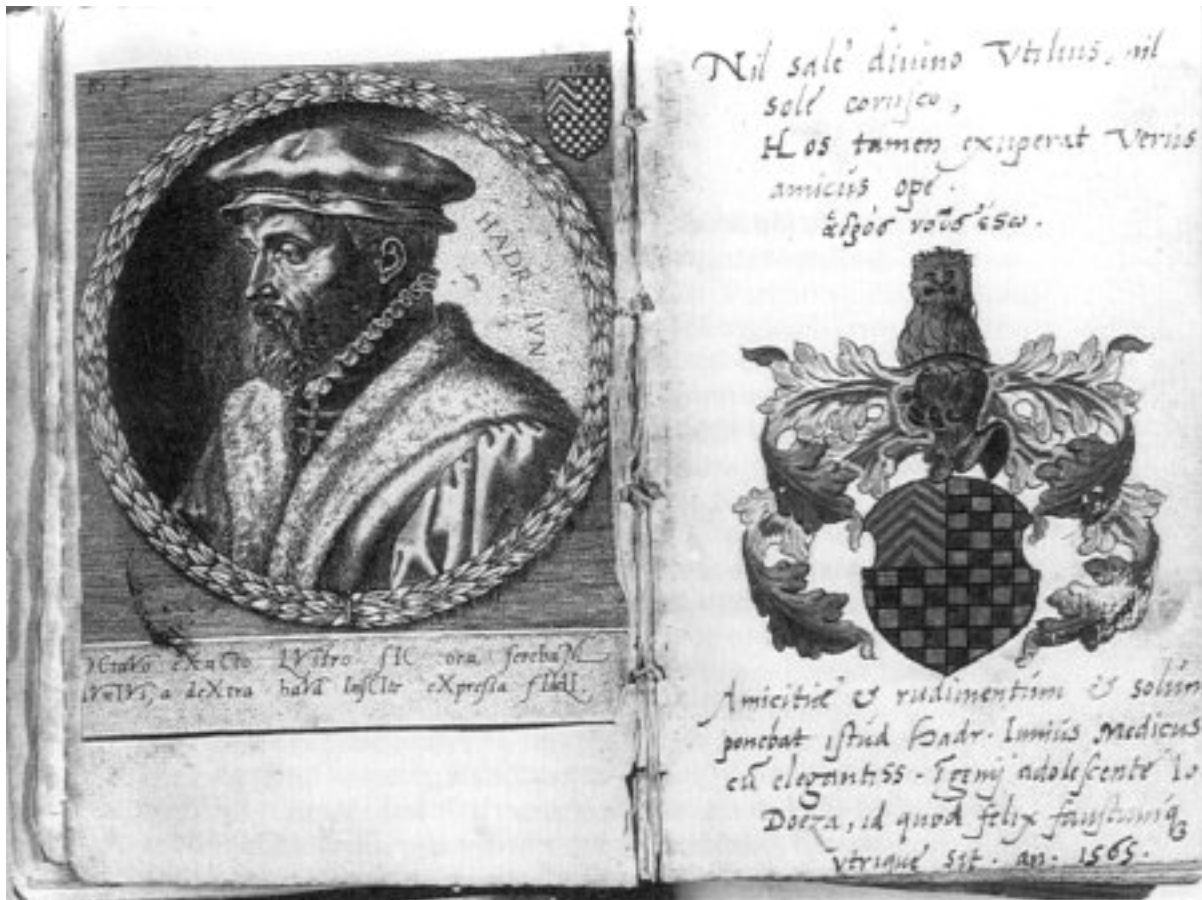 HADR. IVN
ctaVo eXaCto LVstro sIC ora ferebaM
IVnIVs, a deXtra haVd InsCIte eXpressa fIdelI.
Nil sale diuino Vtilius, nil
sole corusco,
Hos tamen exuperat Verus
amicus ope.
ἀνδρὸς νοῦς ἔσω.
Amicitiæ & rudimentum & solum
ponebat istud Hadr. Iunius Medicus
cū elegantiss. Īgenij adolescente Io
Doeza, id quod felix faustumq
vtrique sit. an. 1565.